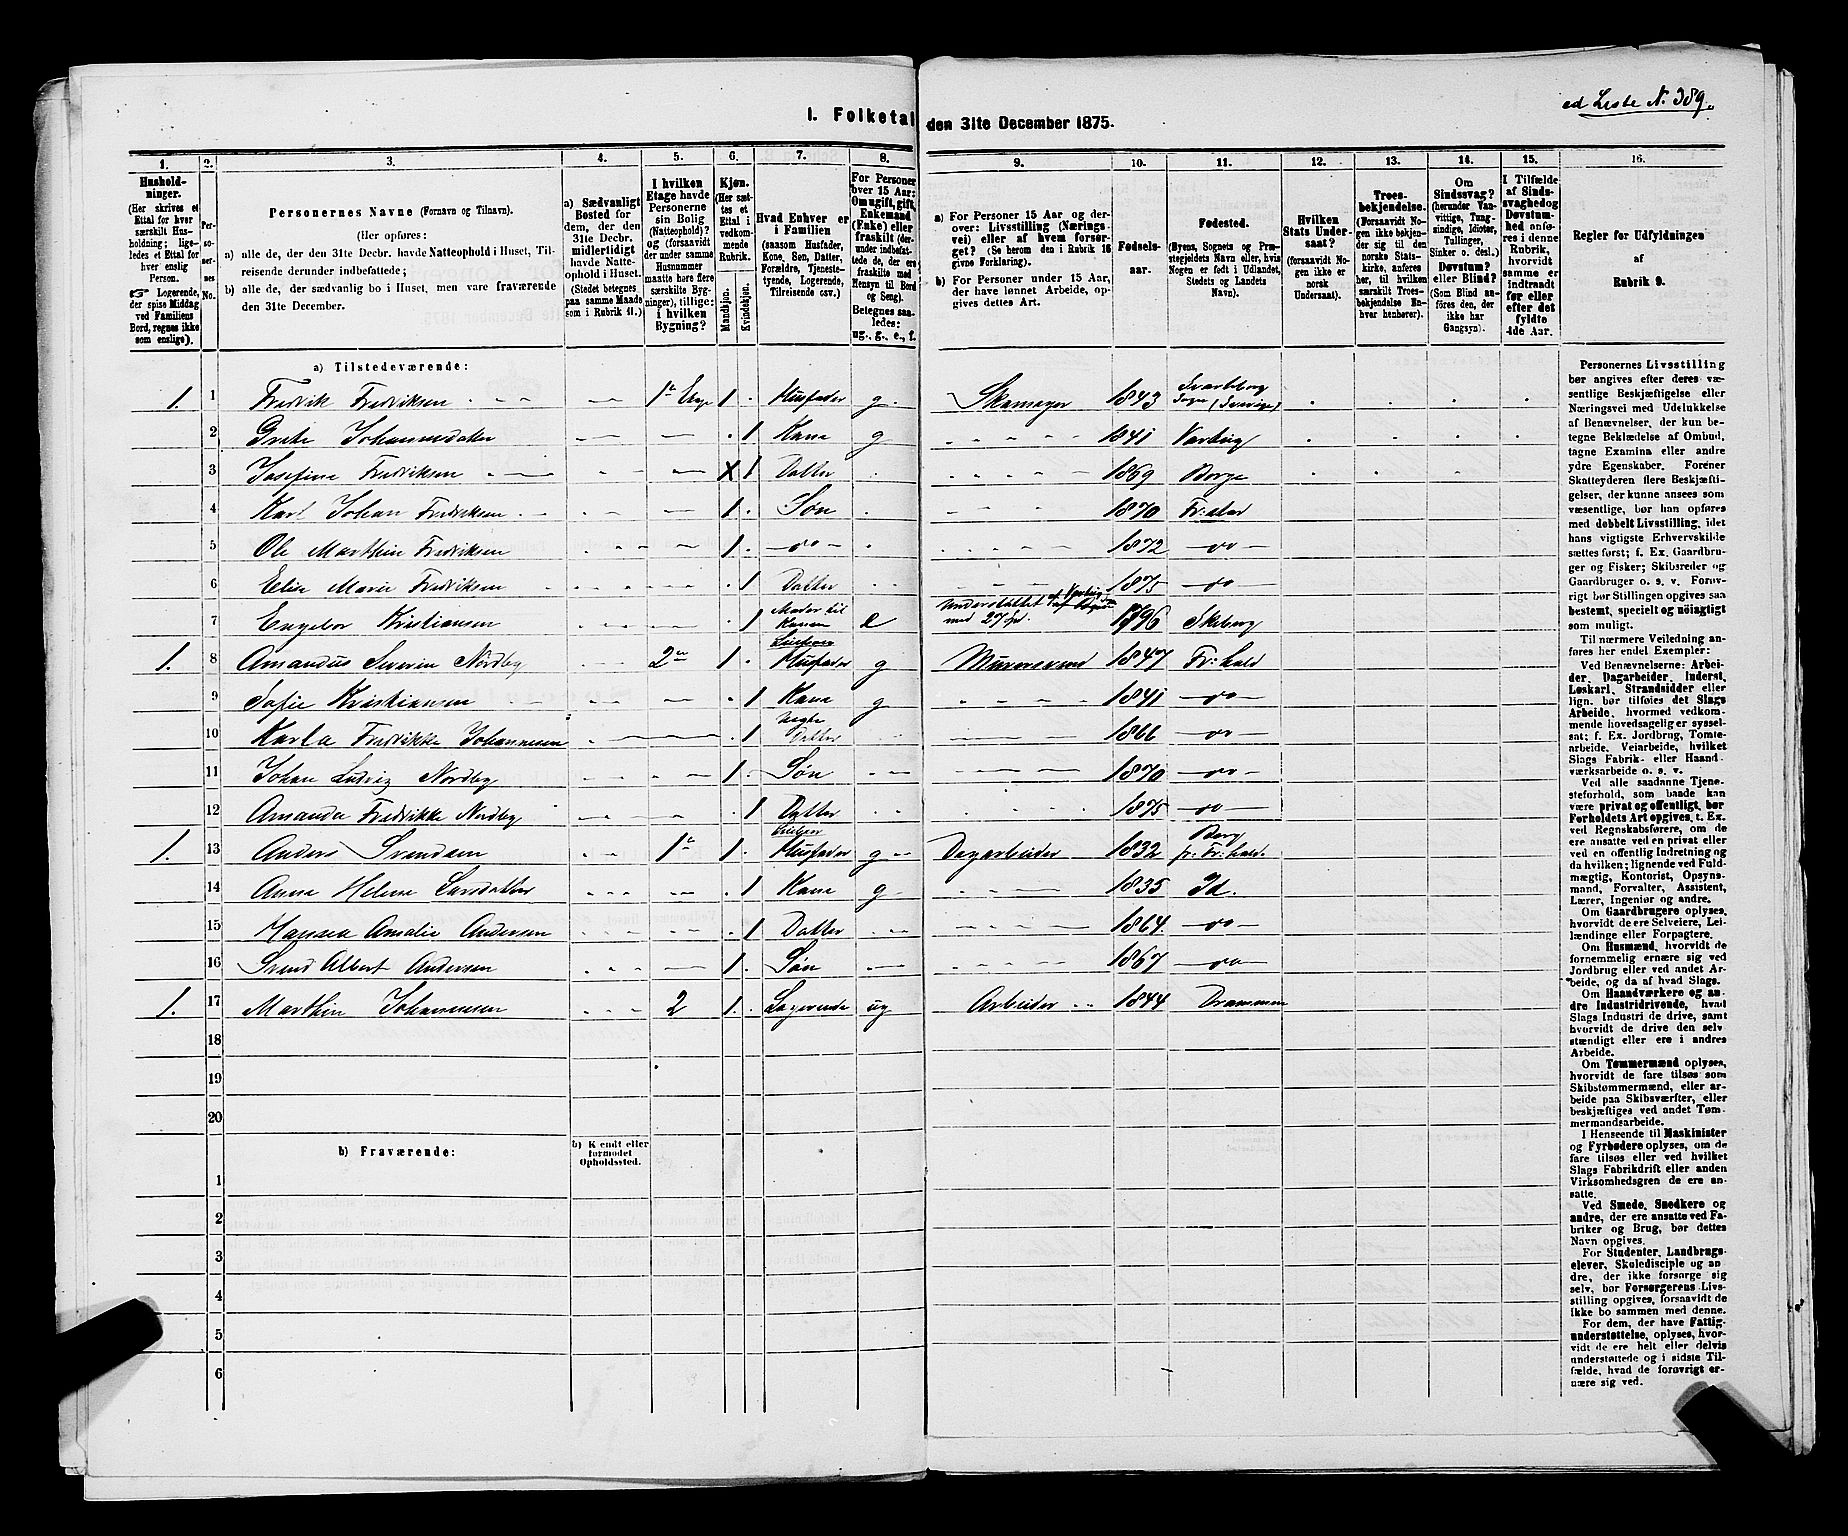 ed Liste N. 389.
I. Folketal den 31te December 1875.
1. 2. 3. 4. 5. 6. 7. 8. 9. 10. 11. 12. 13. 14. 15. 16.
Husholdninger.
(Her skrives et
Ettal for hver
særskilt Husholdning;
ligeledes et Ettal for
hver enslig
Person.
☞ Logerende,
der spise Middag
ved Familiens
Bord, regnes ikke
som enslige).
Personernes No.
Personernes Navne (Fornavn og Tilnavn).
(Her opføres:
a) alle de, der den 31te Decbr. havde Natteophold i Huset, Tilreisende derunder indbefattede;
b) alle de, der sædvanlig bo i Huset, men vare fraværende den 31te December.
a) Sædvanligt
Bosted for
dem, der den
31te Decbr.
midlertidigt
havde Natteophold i Huset.
(Stedet betegnes
paa samme Maade
som i Rubrik 11.)
I hvilken
Etage havde
Personerne
sin Bolig
(Natteophold)?
og (forsaavidt
der under samme
Husnummer
maatte høre flere
særskilte Bygninger), tillige:
i hvilken
Bygning?
Kjøn.
(Her sættes et
Ettal i
vedkommende
Rubrik.
Mandkjøn.
Kvindekjøn.
Hvad Enhver er
i Familien
(saasom Husfader,
Kone, Søn, Datter,
Forældre, Tjenestetyende, Logerende,
Tilreisende osv.)
For Personer
over 15 Aar:
Om ugift, gift,
Enkemand
(Enke) eller
fraskilt (derunder indbefattede de, der ere
fraskilte med
Hensyn til Bord
og Seng).
Betegnes saaledes:
ug., g., e., f.
a) For Personer 15 Aar og derover: Livsstilling (Næringsvei) eller af hvem forsørget? (Se herom den i Rubrik 16 givne Forklaring).
b) For Personer under 15 Aar, der have lønnet Arbeide, opgives dettes Art.
Fødselsaar.
Fødested.
(Byens, Sognets og Præstegjeldets Navn, eller, hvis
Nogen er født i Udlandet,
Stedets og Landets
Navn).
Hvilken
Stats Undersaat?
(forsaavidt Nogen ikke er
norsk
Undersaat).
Troesbekjendelse.
(Forsaavidt Nogen ikke bekjender sig til den
norske Statskirke, anføres
her, til hvilken
særskilt Troesbekjendelse Enhver henhører).
Om
Sindssvag?
(herunder Vanvittige, Tungsindige, Idioter,
Tullinger,
Sinker o. desl.)
Døvstum?
eller Blind?
(Som Blind anføres den, der
ikke har
Gangsyn).
I Tilfælde
af Sindssvaghed og
Døvstumhed anføres i denne
Rubrik,
hvorvidt
samme er
indtraadt
før eller
efter det
fyldte
4de Aar.
Regler for Udfyldningen
af
Rubrik 9.
a) Tilstedeværende:
1. 1 Fredrik Fredriksen 1ste Etage 1 Husfader g. 1843 Sogn (Sverige)
2 Grete 1 Kone g 1841
3 Josefine Fredriksen X 1 Datter 1869 Borge
4 Karl Johan Fredriksen 1 Søn 1870 Fr:stad
5 Ole Marthin Fredriksen 1 – oo – 1872 – oo –
6 Elise Marie Fredriksen 1 Datter 1875 – oo –
7 Engebor Kristiansen 1 Moder til Konen e Understøttet med 27 1796 Skeberg
1. 8 Amandus Severin Nordby 2 1 Husfader g 1847 Fr:hald
9 Sofie Kristiansen 1 Kone g 1841 – oo –
10 Karla Fredrikke Johannesen 1 Datter 1866 – oo –
11 Johan Ludvig Nordby 1 Søn 1870 – oo –
12 Amanda Fredrikke Nordby 1 Datter 1875 – oo –
1. 13 Anders Svendsen 1 1 Husfader g Dagarbeider 1832 Berg pr: Fr:hald.
14 Anna Helene 1 Kone g 1835 Id.
15 Hansea Amalie Andersen 1 Datter 1864 – oo –
16 Svend Albert Andersen 1 Søn 1867 – oo –
1. 17 Marthin Johannesen 2 1 Logerende ug Arbeider 1844 Drammen
18
19
20
b) Fraværende:
b) Kendt eller
formodet
Opholdssted.
1
2
3
4
5
6
Personernes Livsstilling
bør angives efter deres væsentlige Beskjæftigelse eller
Næringsvei med Udelukkelse
af Benævnelser, der kun betegne Beklædelse af Ombud,
tagne Examina eller andre
ydre Egenskaber. Forener
Skatteyderen flere Beskjæftigelser, der kunne ansees som
væsentlige, bør han opføres
med dobbelt Livsstilling, idet
hans vigtigste Erhvervskilde
sættes først; f. Ex. Gaardbruger og Fisker; Skibsreder og
Gaardbruger o. s. v. Forøvrigt bør Stillingen opgives saa
bestemt, specielt og nøiagtigt
som muligt.
Til nærmere Veiledning anføres her endel Exempler:
Ved Benævnelserne: Arbeider, Dagarbeider, Inderst,
Løskarl, Strandsidder eller
lign. bør tilføies det Slags
Arbeide, hvormed vedkommende hovedsagelig er sysselsat; f. Ex. Jordbrug, Tomtearbeide, Veiarbeide, hvilket
Slags Fabrik- eller Haandværksarbeide o. s. v.
Ved alle saadanne Tjenesteforhold, som baade kan
være privat og offentligt, bør
Forholdets Art opgives, t. Ex.
ved Regnskabsførere, om de
ere ansatte ved en privat eller
ved en offentlig Indretning og
da hvilken; lignende ved Fuldmægtig, Kontorist, Opsynsmand, Forvalter, Assistent,
Lærer, Ingeniør og andre.
Om Gaardbrugere oplyses,
hvorvidt de ere Selveiere, Leilændinge eller Forpagtere.
Om Husmænd, hvorvidt de
fornemmelig ernære sig ved
Jordbrug eller ved andet Arbeide, og da af hvad Slags.
Om Haandværkere og andre Industridrivende, hvad
Slags Industri de drive, samt
hvorvidt de drive den selvstændigt eller ere i andres
Arbeide.
Om Tømmermænd oplyses,
hvorvidt de fare tilsøs som
Skibstømmermænd, eller arbeide paa Skibsværfter, eller
beskjæftiges ved andet Tømmermandsarbeide.
I Henseende til Maskinister
og Fyrbødere oplyses, om de
fare tilsøs eller ved hvilket
Slags Fabrikdrift eller anden
Virksomhedsgren de ere ansatte.
Ved Smede, Snedkere og
andre, der ere ansatte ved Fabriker og Brug, bør dettes
Navn opgives.
For Studenter, Landbrugselever, Skoledisciple og andre, der ikke forsørge sig
selv, bør Forsørgerens Livsstilling opgives, forsaavidt de
ikke bo sammen med denne.
For dem, der have Fattigunderstøttelse, oplyses, hvorvidt de ere helt eller delvis
understøttede og i sidste Tilfælde, hvad de forøvrigt ernære sig ved.